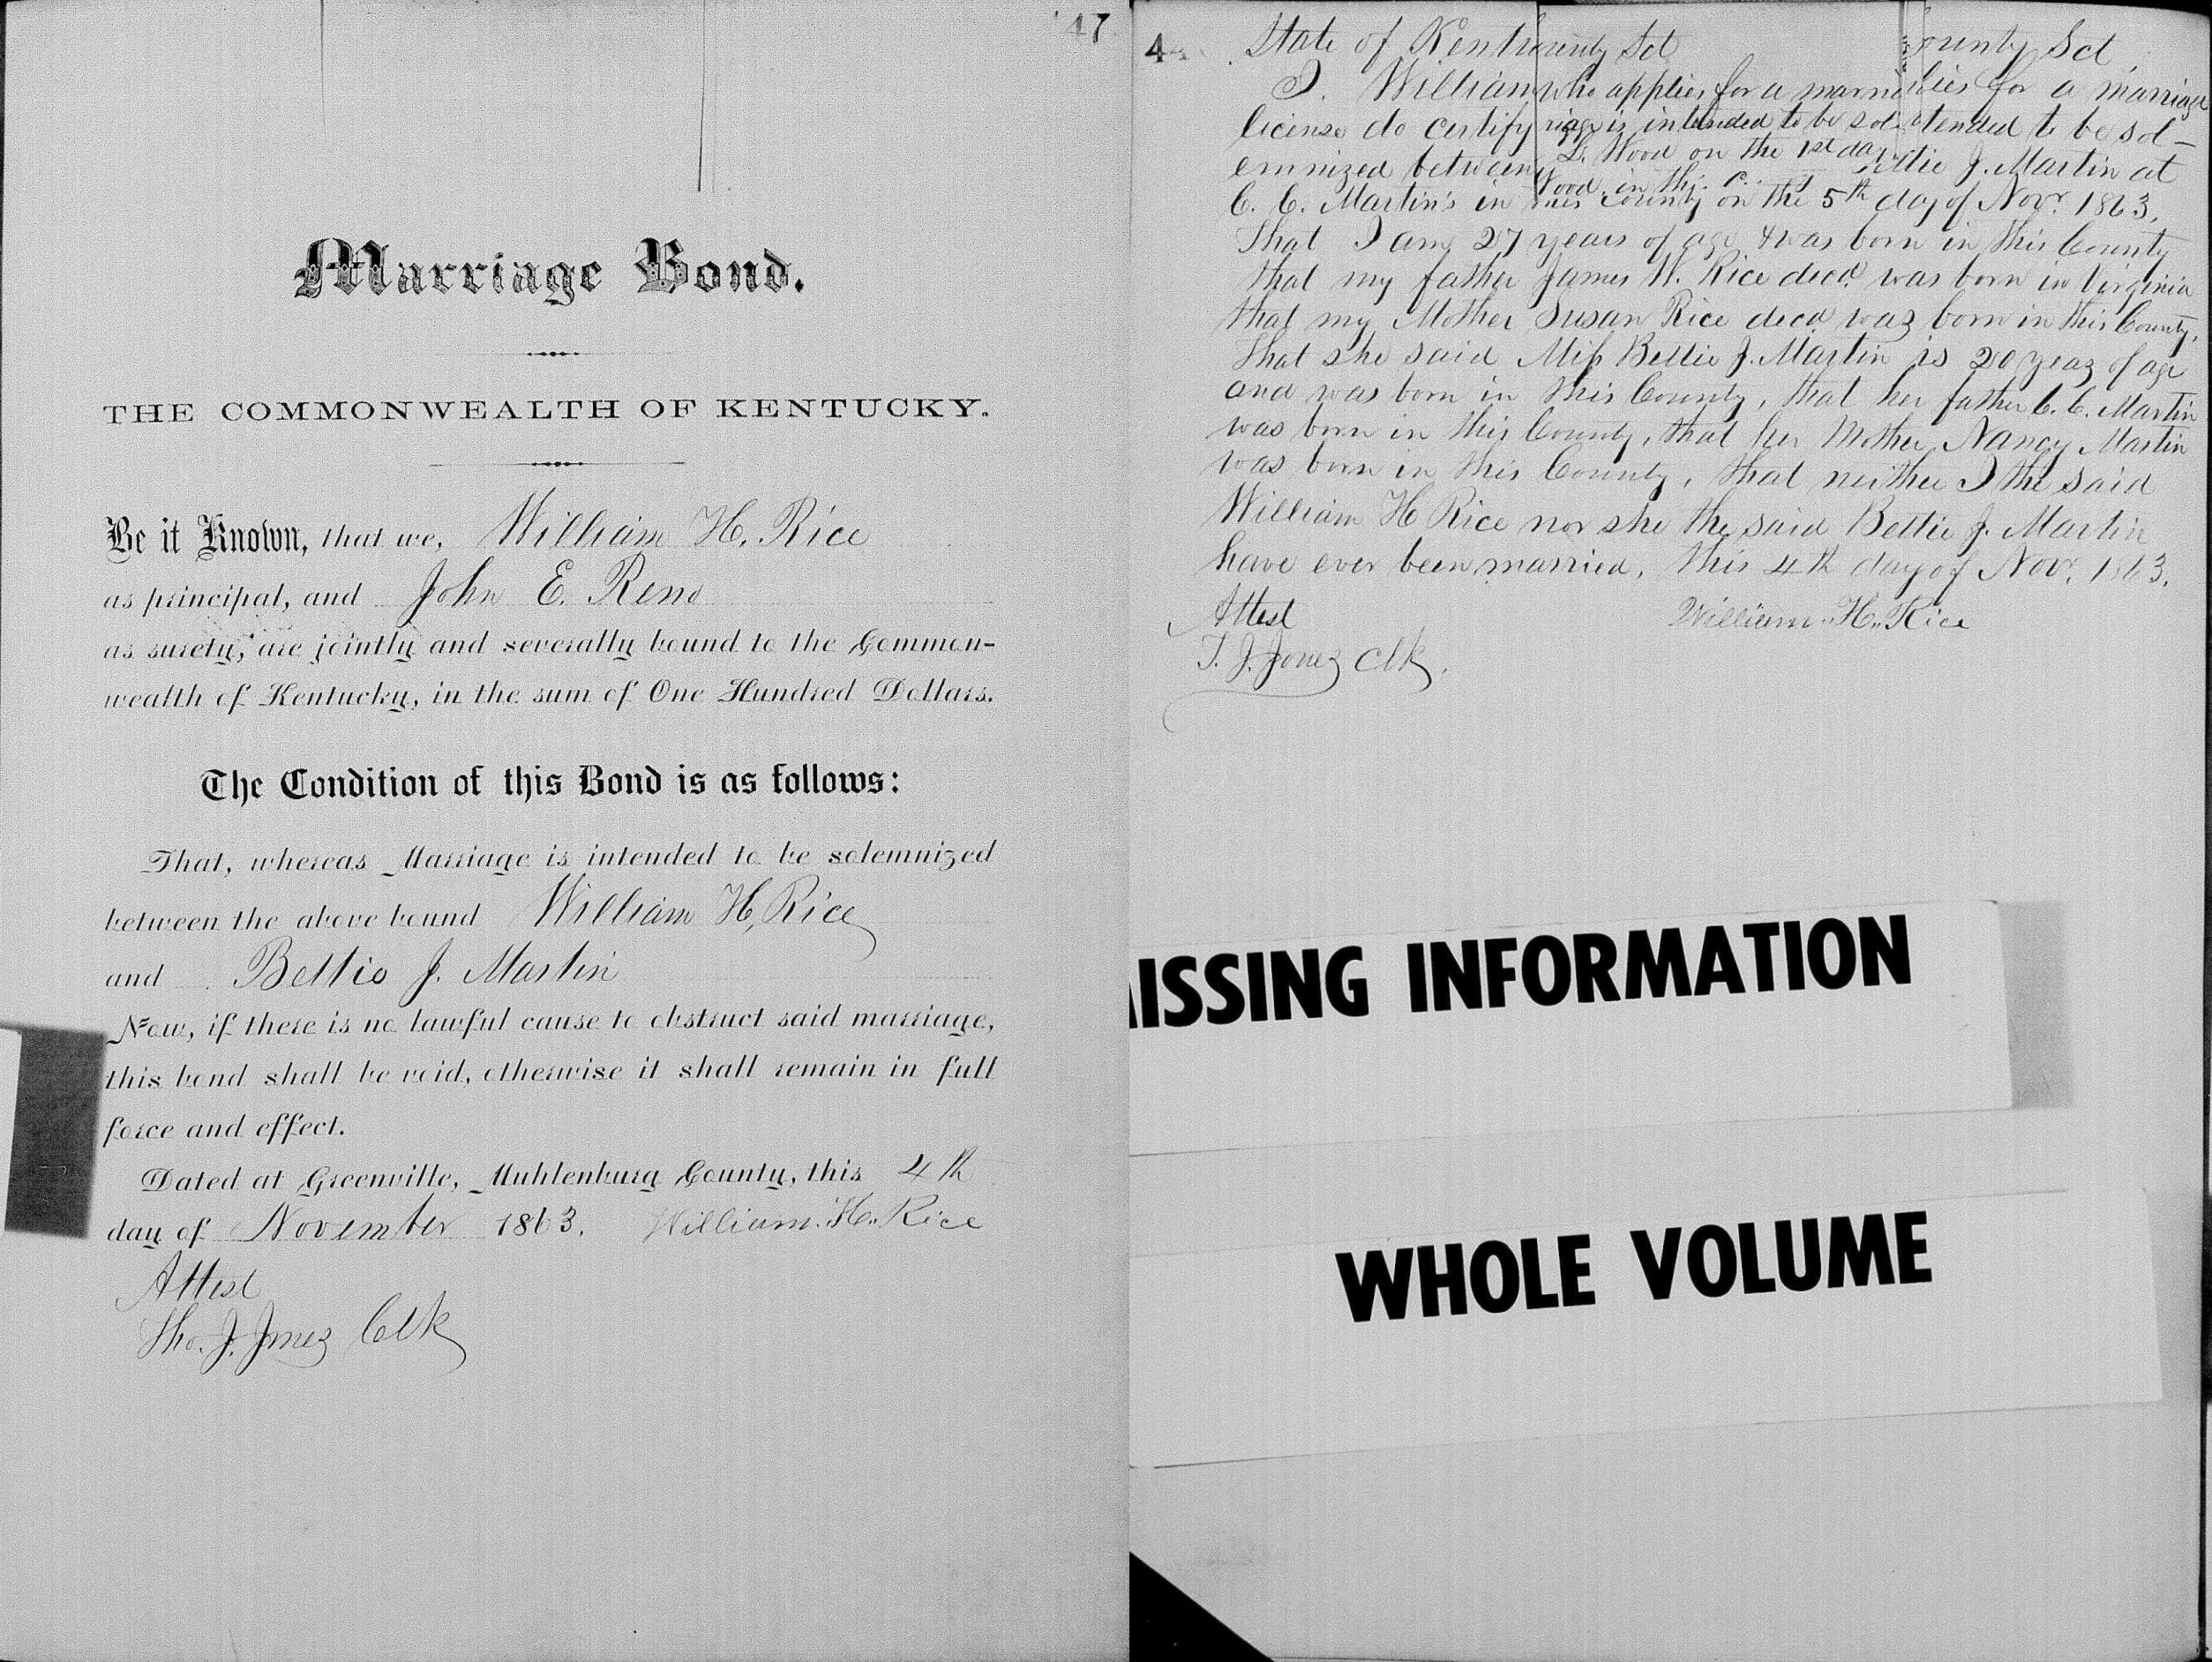 47
Marriage Bond.
THE COMMONWEALTH OF KENTUCKY.
Be it Known, that we, William H. Rice
as principal, and John E. Reno
as surety, are jointly and severally bound to the Common-
wealth of Kentucky, in the sum of One Hundred Dollars.
The Condition of this Bond is as follows:
That, whereas Marriage is intended to be solemnized
between the above bound William H, Rice
and Bettie J. Martin
Now, if there is no lawful cause to obstruct said marriage,
this bond shall be void, otherwise it shall remain in full
force and effect.
Dated at Greenville, Muhlenburg County, this 4th
day of November 1863. William. H.. Rice
Attest
Tho. J. Jones Clk
4
State of Kent ounty Sct ounty Sct
I. William who applies for a marri lies for a marriage
license do certify riage is intended to be sol tended to be sol-
emnized between L. Wood on the 1st da ttie J. Martin at
Wood in
C. C. Martin's in this County on the 5th day of Novr. 1863.
That I am 27 years of age & was born in this County
that my father James W. Rice decd. was born in Virginia
that my Mother Susan Rice decd was born in this County,
That she said Miss Bettie J. Martin is 20 years of age
and was born in this County, that her father C. C. Martin
was born in this County, that her Mother Nancy Martin
was born in this County, that neither I the said
William H Rice nor she the said Bettie J. Martin
have ever been married, this 4th day of Novr. 1863.
Attest William. H.. Rice
T. J. Jones Clk.
ISSING INFORMATION
WHOLE VOLUME